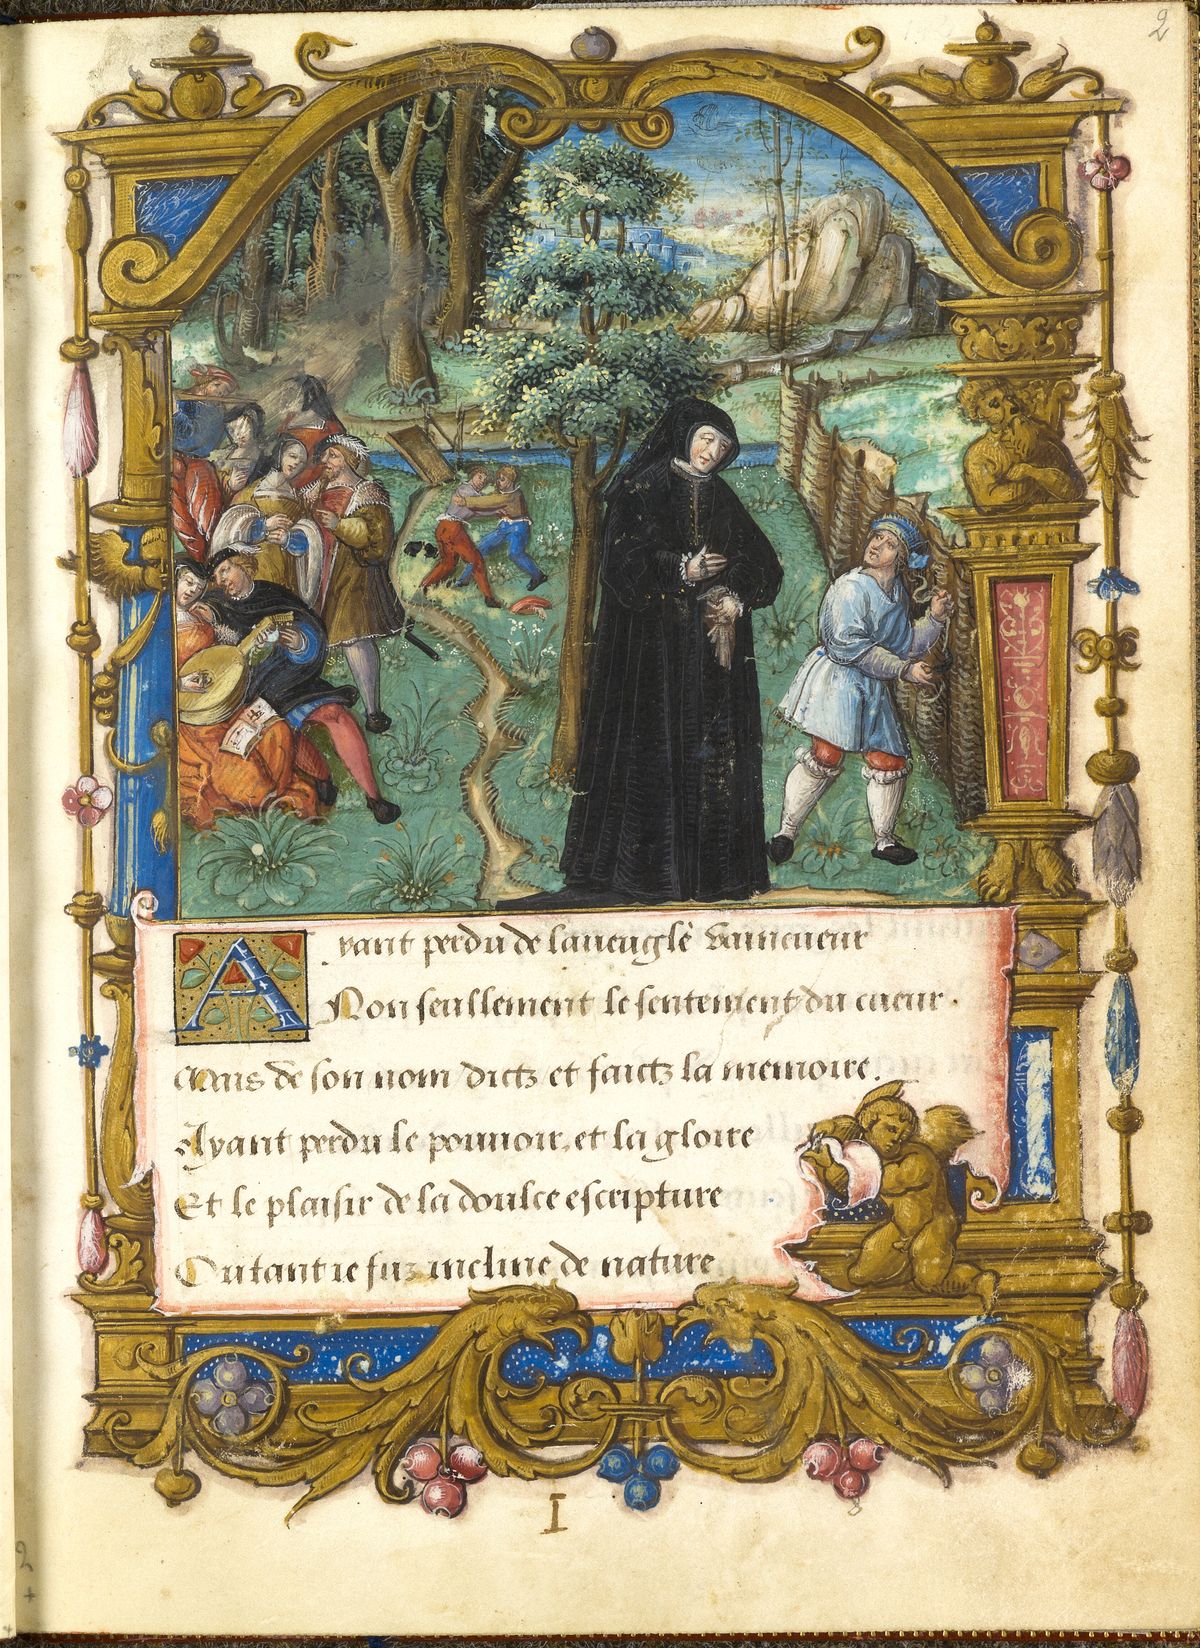 2
Ayant perdu de laueuglé vaincueur
Non seullement le sentement du cueur.
Mais de son nom dictz et faictz la memoire.
Ayant perdu le pouuoir, et la gloire
Et le plaisir de la doulce escripture
Ou tant ie fuz incline de nature
I
2
+